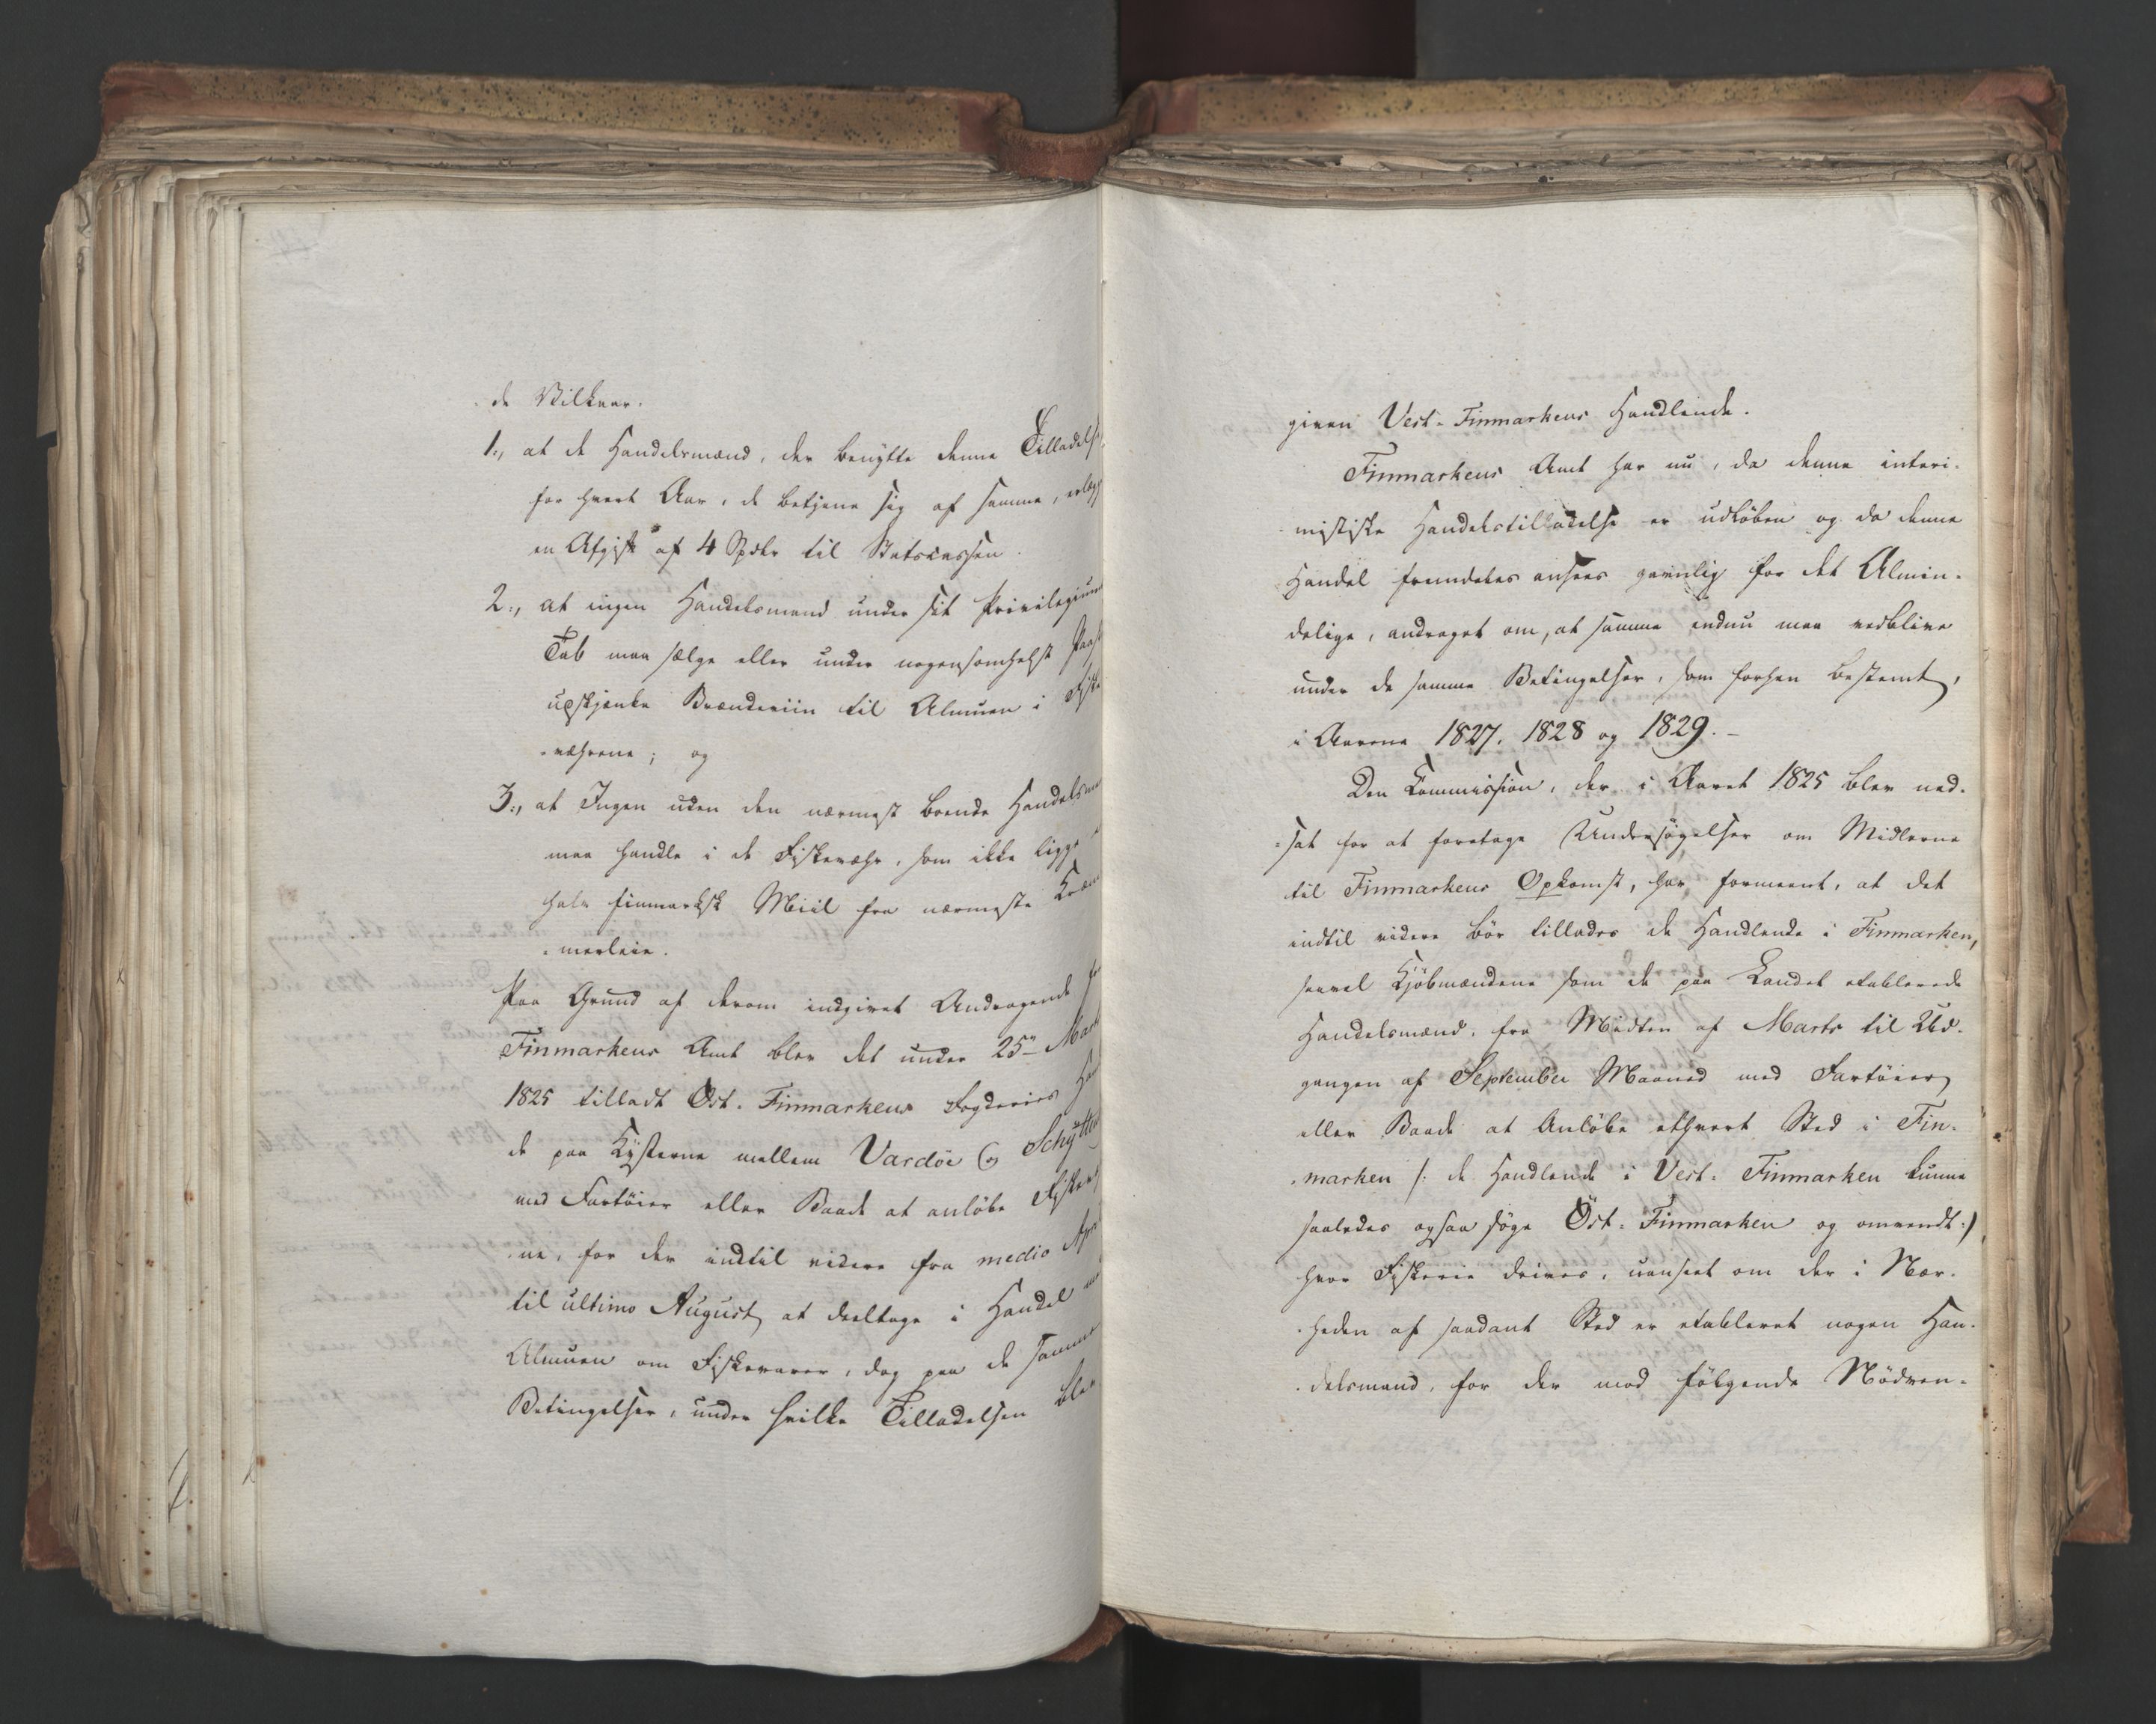 de Vilkaar.
1:, at de Handelsmænd, der benytte denne Tilladelse
for hvert Aar, de betjene sig af samme, erlægge
en Afgift af 4 Spdlr til Statscassen.
2:, at ingen Handelsmand under sit Privilegiums
Tab maa sælge eller under nogensomhelst
udskjænke Brændeviin til Almuen i Fiske
-væhrene; og
3:, at Ingen uden den nærmest boende Handelsmand
maa handle i de Fiskevæhr, som ikke ligge
halv finmarksk Miil fra nærmeste Kræm
-merleie.
Paa Grund af derom indgivet Andragende fra
Finmarkens Amt blev det under 25de Marts
1825 tilladt Ost-Finmarkens Fogderies
de paa Kysterne mellem Vardöe og
med Fartöier eller Baade at anlöbe
ne, for der indtil videre fra medio April
til ultimo August at deeltage i Handel med
Almuen om Fiskevarer, dog paa de samme
Betingelser, under hvilke Tilladelsen blev
given Vest-Finmarkens Handlende.
Finmarkens Amt har nu, da denne interi-
mistiske Handelstilladelse er udlöben og da denne
Handel fremdeles ansees gavnlig for det Almin-
delige, andraget om, at samme endnu maa vedblive
under de samme Betingelser, som forhen bestemt,
i Aarene 1827, 1828 og 1829.-
Den Commission, der i Aaret 1825 blev ned-
-sat for at foretage Undersögelser om Midlerne
til Finmarkens Opkomst, har formeent, at det
indtil videre bör tillades de Handlende i Finmarken,
saavel Kjöbmændene som de paa Landet etablerede
Handelsmænd, fra Midten af Marts til Ud-
gangen af September Maaned med Fartöier
eller Baade at Anlöbe ethvert Sted i Fin-
-marken /: de Handlende i Vest-Finmarken kunne
saaledes ogsaa söge Öst-Finmarken og omvendt :/,
hvor Fiskerie drives, uanseet om der i Nær-
-heden af saadant Sted er etableret nogen Han-
-delsmand, for der mod fölgende Nödven-